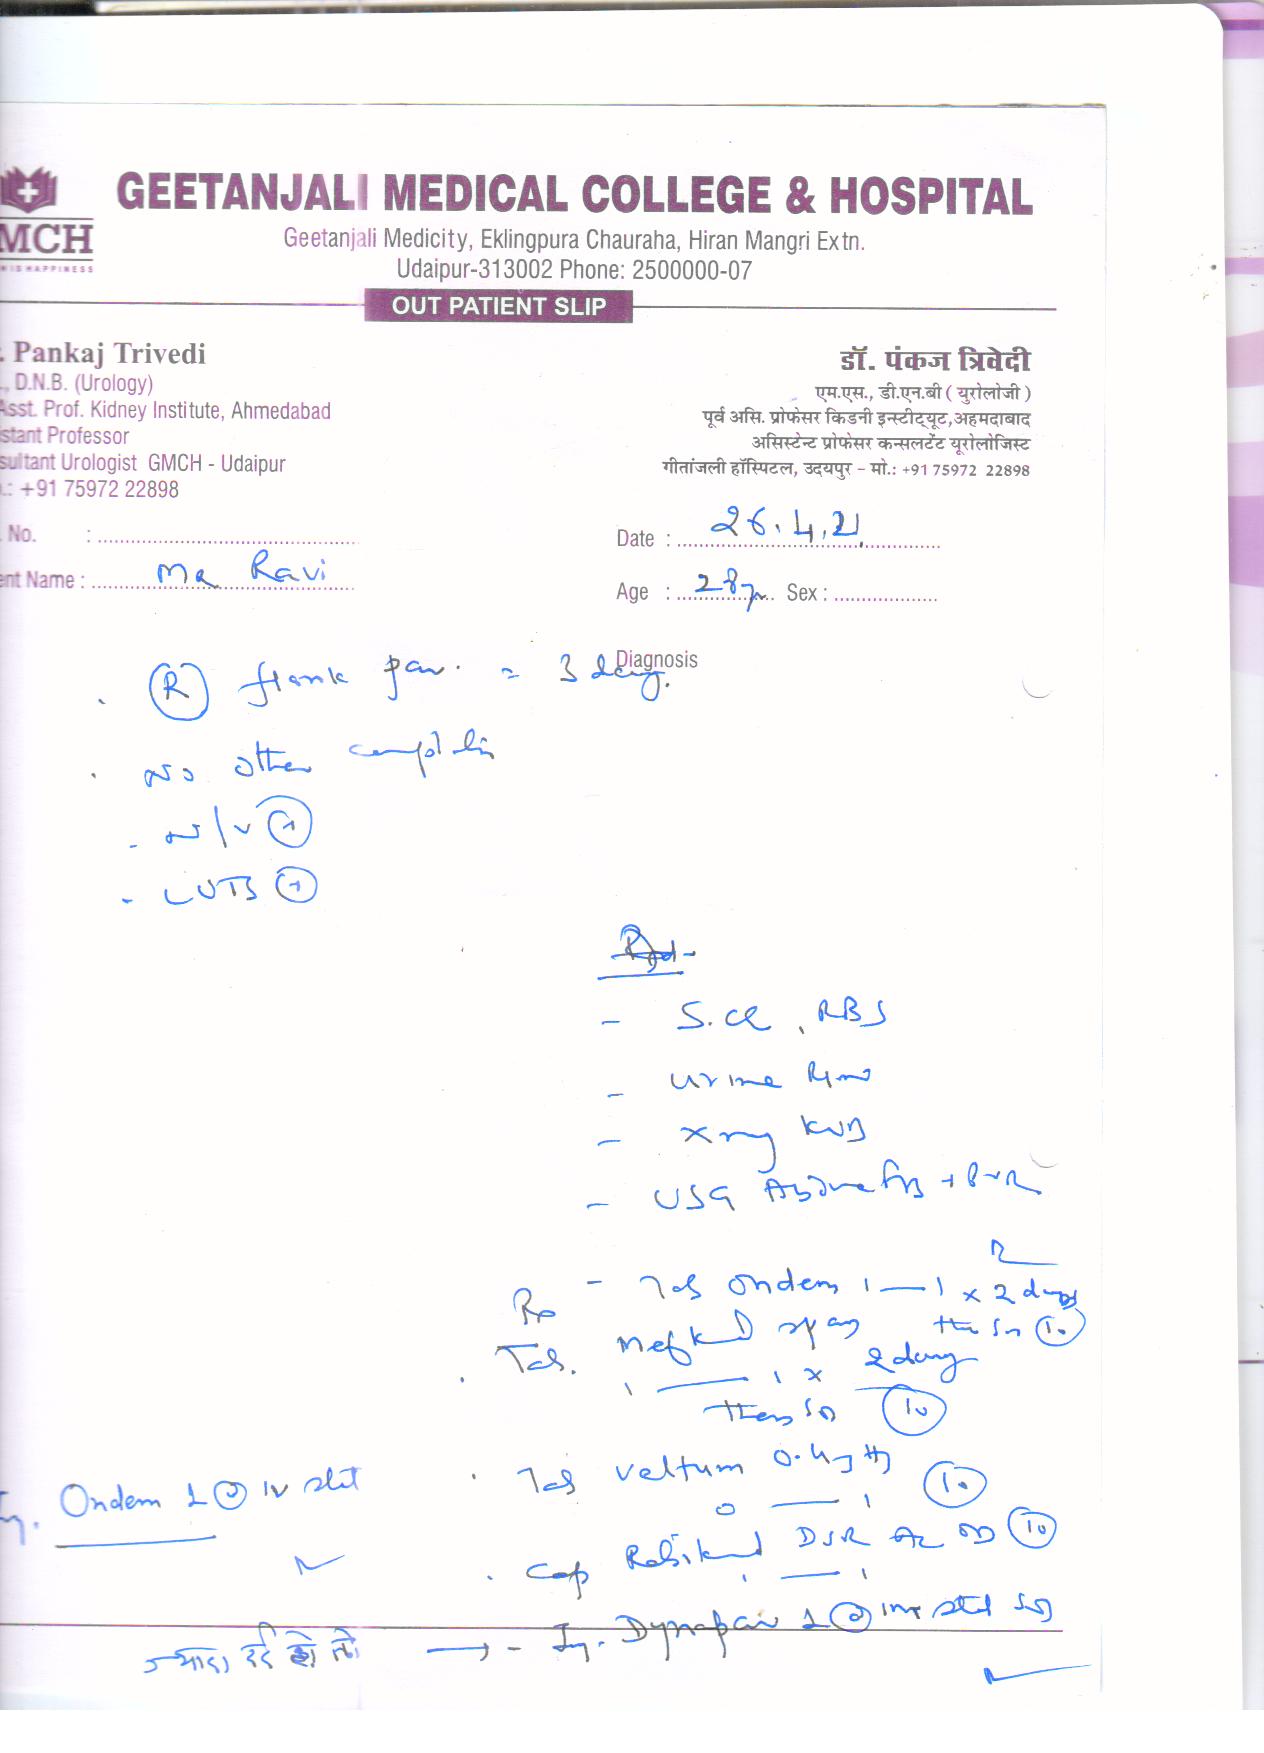 GEETANJALI MEDICAL COLLEGE & HOSPITAL
MCH
Geetanjali Medicity, Eklingpura Chauraha, Hiran Mangri Extn.
Udaipur-313002 Phone: 2500000-07
OUT PATIENT SLIP
. Pankaj Trivedi
, D.N.B. (Urology)
Asst. Prof. Kidney Institute, Ahmedabad
stant Professor
sultant Urologist GMCH - Udaipur
.: +91 75972 22898
डॉ. पंकज त्रिवेदी
एम.एस., डी.एन.बी ( युरोलोजी )
पूर्व असि. प्रोफेसर किडनी इन्स्टीट्यूट,अहमदाबाद
असिस्टेन्ट प्रोफेसर कन्सलटेंट यूरोलोजिस्ट
गीतांजली हॉस्पिटल, उदयपुर - मो.: +91 75972 22898
No. :
Date : 26.4.21
ent Name : Mr Ravi
Age : 28 Sex :
Diagnosis
(R) flank pain 3 day.
No other
N/V
LUTS
- S.Cr, RBS
- Urine
- Xray KUB
- USG + PVR
Rp - Tab Ondem 1 — 1 x 2 days
then SOS (10)
Tab. Mefkind spas
1 — 1 x 2 day
then SOS (10)
Tab Veltum 0.4mg (10)
0 — 1
Cap Rabikind DSR AC OD (10)
1 — 1
Inj. Ondem 1 IV stat
ज्यादा दर्द हो तो → - Inj. Dynapar 1 im stat SOS